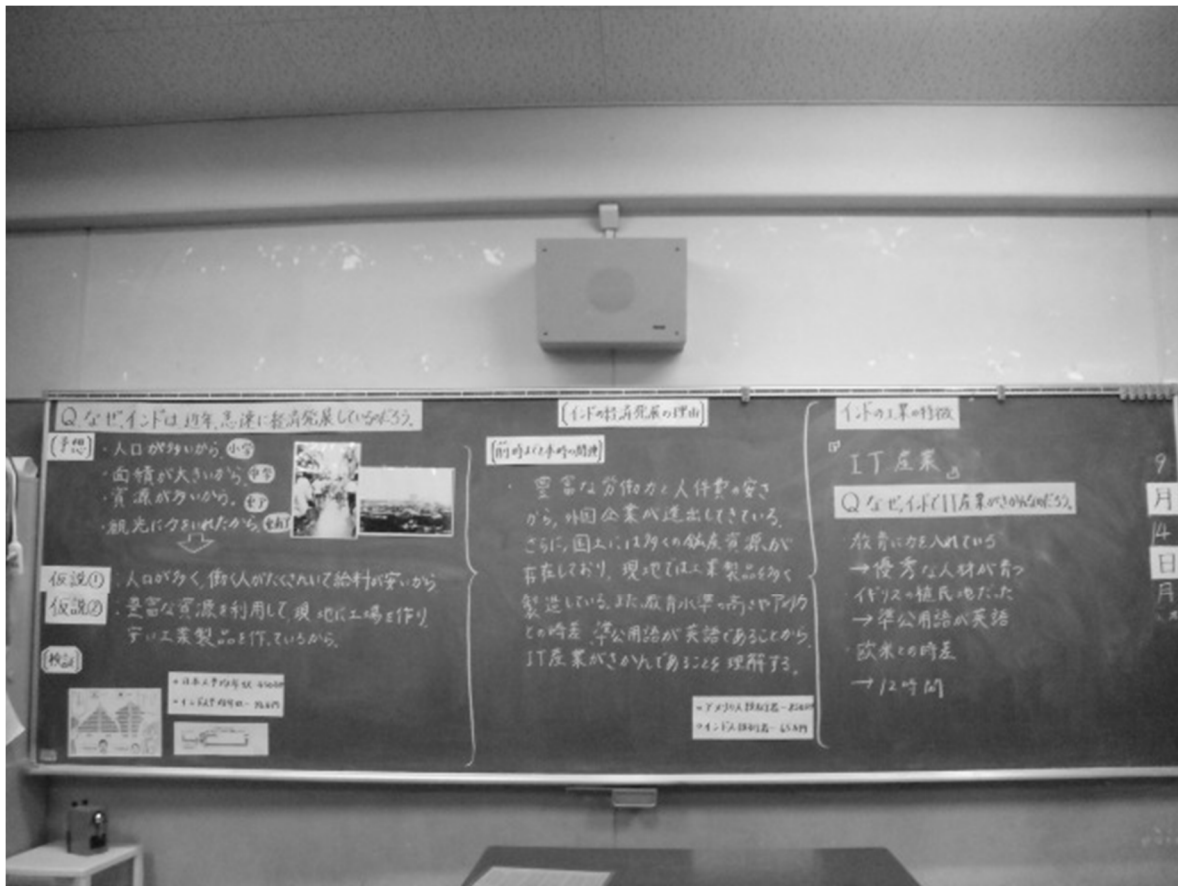 Q なぜ、インドは近年、急速に経済発展しているのだろう。
〔予想〕
・人口が多いから。小学
・面積が大きいから。中学
・資源が多いから。
・観光に力をいれたから。
仮説①
・人口が多く、働く人がたくさんいて給料が安いから
仮説②
・豊富な資源を利用して、現地に工場を作り、
安い工業製品を作っているから。
〔検証〕
〔インドの経済発展の理由〕
〔前時までと本時の関連〕
・豊富な労働力と人件費の安さ
から、外国企業が進出してきている。
さらに、国土には多くの鉱産資源が
存在しており、現地では工業製品を多く
製造している。また、教育水準の高さやアメリカ
との時差、準公用語が英語であることから、
IT産業がさかんであることを理解する。
インドの工業の特徴
IT産業
Q なぜ、インドでIT産業がさかんなのだろう。
・教育に力を入れている
→優秀な人材が育つ
・イギリスの植民地だった
→準公用語が英語
・欧米との時差
→12時間
9
月
14
日
月